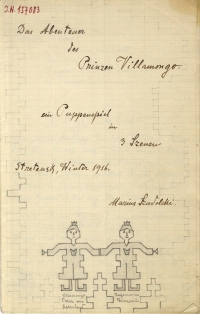 J.N. 137083
Das Abenteuer
des
Prinzen Villamongo.
ein Puppenspiel
in
3 Szenen
Stretensk, Winter 1916.
Marius